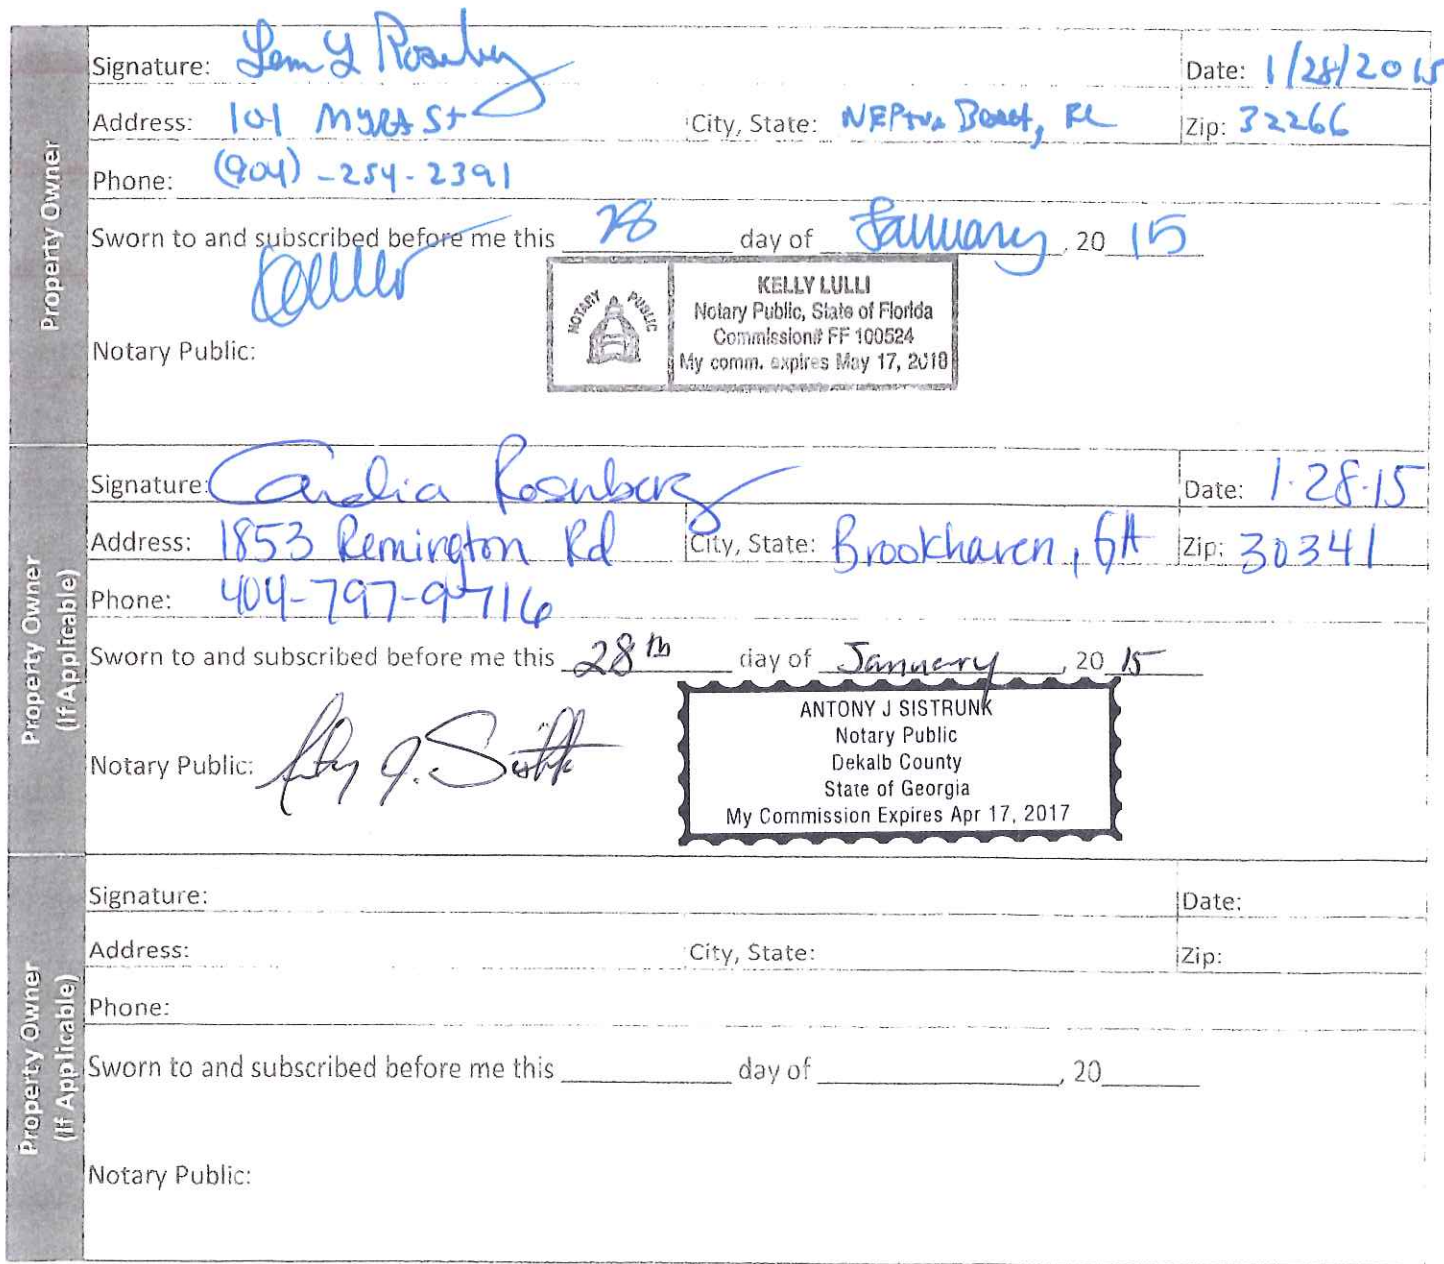 Property Owner
Signature: Rosenberg Date: 1/28/2015
Address: 101 MYRA St City, State: NEPtune Beach, FL Zip: 32266
Phone: (904) -254-2391
Sworn to and subscribed before me this 28 day of January, 20 15
KELLY LULLI
Notary Public, State of Florida
Commission# FF 100524
My comm. expires May 17, 2018
NOTARY PUBLIC
Notary Public:
Property Owner
(If Applicable)
Signature: Rosenberg Date: 1-28-15
Address: 1853 Remington Rd City, State: Brookhaven, GA Zip: 30341
Phone: 404-797-9716
Sworn to and subscribed before me this 28th day of January, 20 15
ANTONY J SISTRUNK
Notary Public
Dekalb County
State of Georgia
My Commission Expires Apr 17, 2017
Notary Public:
Property Owner
(If Applicable)
Signature: Date:
Address: City, State: Zip:
Phone:
Sworn to and subscribed before me this ____ day of ____, 20____
Notary Public: